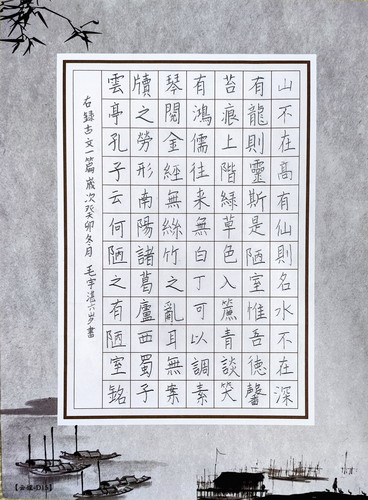 山不在高有仙則名水不在深
有龍則靈斯是陋室惟吾德馨
苔痕上階緑草色入簾青談笑
有鴻儒往来無白丁可以調素
琴閱金經無絲竹之亂耳無案
牘之勞形南陽諸葛廬西蜀子
雲亭孔子云何陋之有陋室銘
右録古文一篇歲次癸卯冬月 毛宇湛六岁書